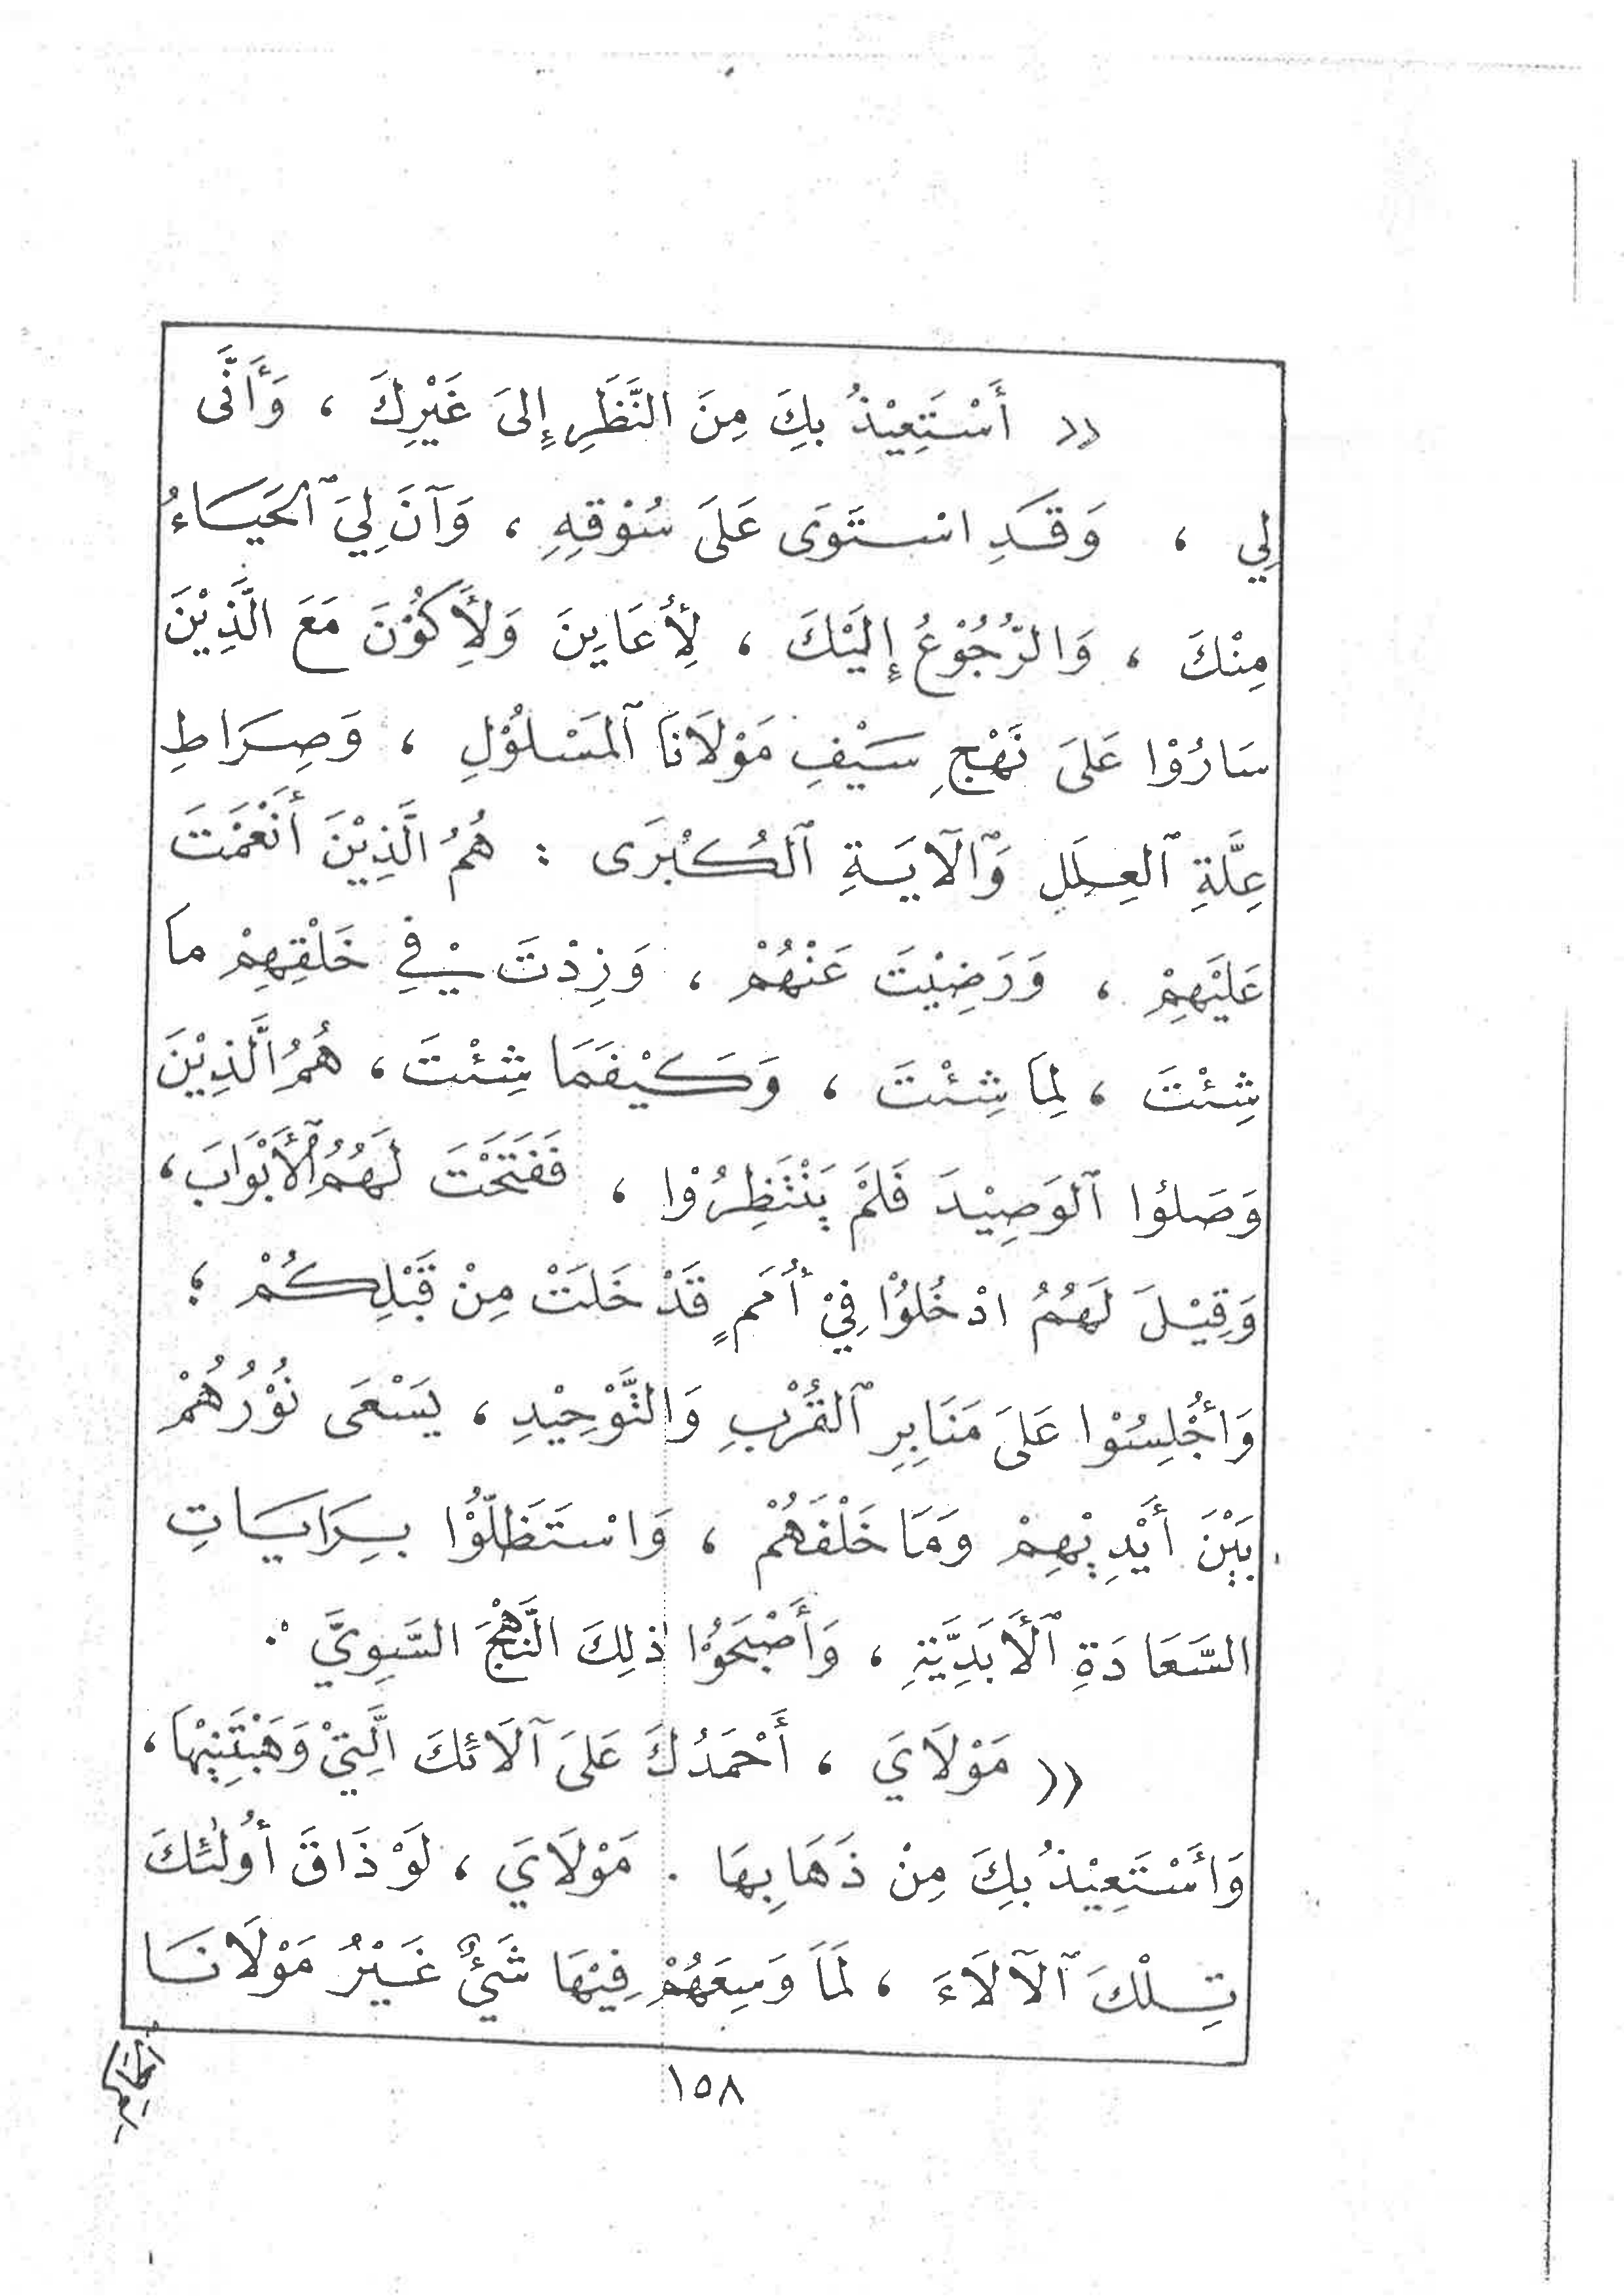 (( أَسْتَعِيْذُ بِكَ مِنَ النَّظَرِ إِلىَ غَيْرِكَ ، وَأَنَّى
لِي ، وَقَدِ اسْتَوَى عَلَىَ سُوْقِهِ ، وَآنَ لِيَ ٱلحَيَاءُ
مِنْكَ ، وَالرُّجُوْعُ إِلَيْكَ ، لِأُعَايِنَ وَلِأَكُوْنَ مَعَ الَّذِيْنَ
سَارُوْا عَلَىَ نَهْجِ سَيْفِ مَوْلَانَا ٱلمَسْلُوْلِ ، وَصِرَاطِ
عِلَّةِ ٱلعِلَلِ وَٱلآيَةِ ٱلكُبْرَى : هُمُ الَّذِيْنَ أَنْعَمْتَ
عَلَيْهِمْ ، وَرَضِيْتَ عَنْهُمْ ، وَزِدْتَ فِيْ خَلْقِهِمْ مَا
شِئْتَ ، لِمَا شِئْتَ ، وَكَيْفَمَا شِئْتَ ، هُمُ الَّذِيْنَ
وَصَلُوا ٱلوَصِيْدَ فَلَمْ يَنْتَظِرُوْا ، فَفَتَحْتَ لَهُمُ ٱلأَبْوَابَ ،
وَقِيْلَ لَهُمُ ادْخُلُوْا فِيْ أُمَمٍ قَدْ خَلَتْ مِنْ قَبْلِكُمْ ؛
وَأُجْلِسُوْا عَلَىَ مَنَابِرِ ٱلقُرْبِ وَالتَّوْحِيْدِ ، يَسْعَى نُوْرُهُمْ
بَيْنَ أَيْدِيْهِمْ وَمَا خَلْفَهُمْ ، وَاسْتَظَلُّوْا بِرَايَاتِ
السَّعَادَةِ ٱلأَبَدِيَّةِ ، وَأَصْبَحُوْا ذلِكَ النَّهْجَ السَّوِيَّ .
(( مَوْلَايَ ، أَحْمَدُكَ عَلَىَ آلَائِكَ الَّتِيْ وَهَبْتَنِيْهَا ،
وَأَسْتَعِيْذُ بِكَ مِنْ ذَهَابِهَا . مَوْلَايَ ، لَوْ ذَاقَ أُولٰئِكَ
تِلْكَ ٱلآلَاءَ ، لَمَا وَسِعَهُمْ فِيْهَا شَيْءٌ غَيْرُ مَوْلَانَا
١٥٨